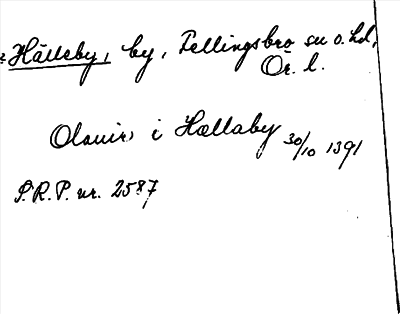 Hälleby, by, Fellingsbro sn o. hd,
Ör. l.
Olauir i Hællaby 30/10 1391
P.R.P. nr. 2587